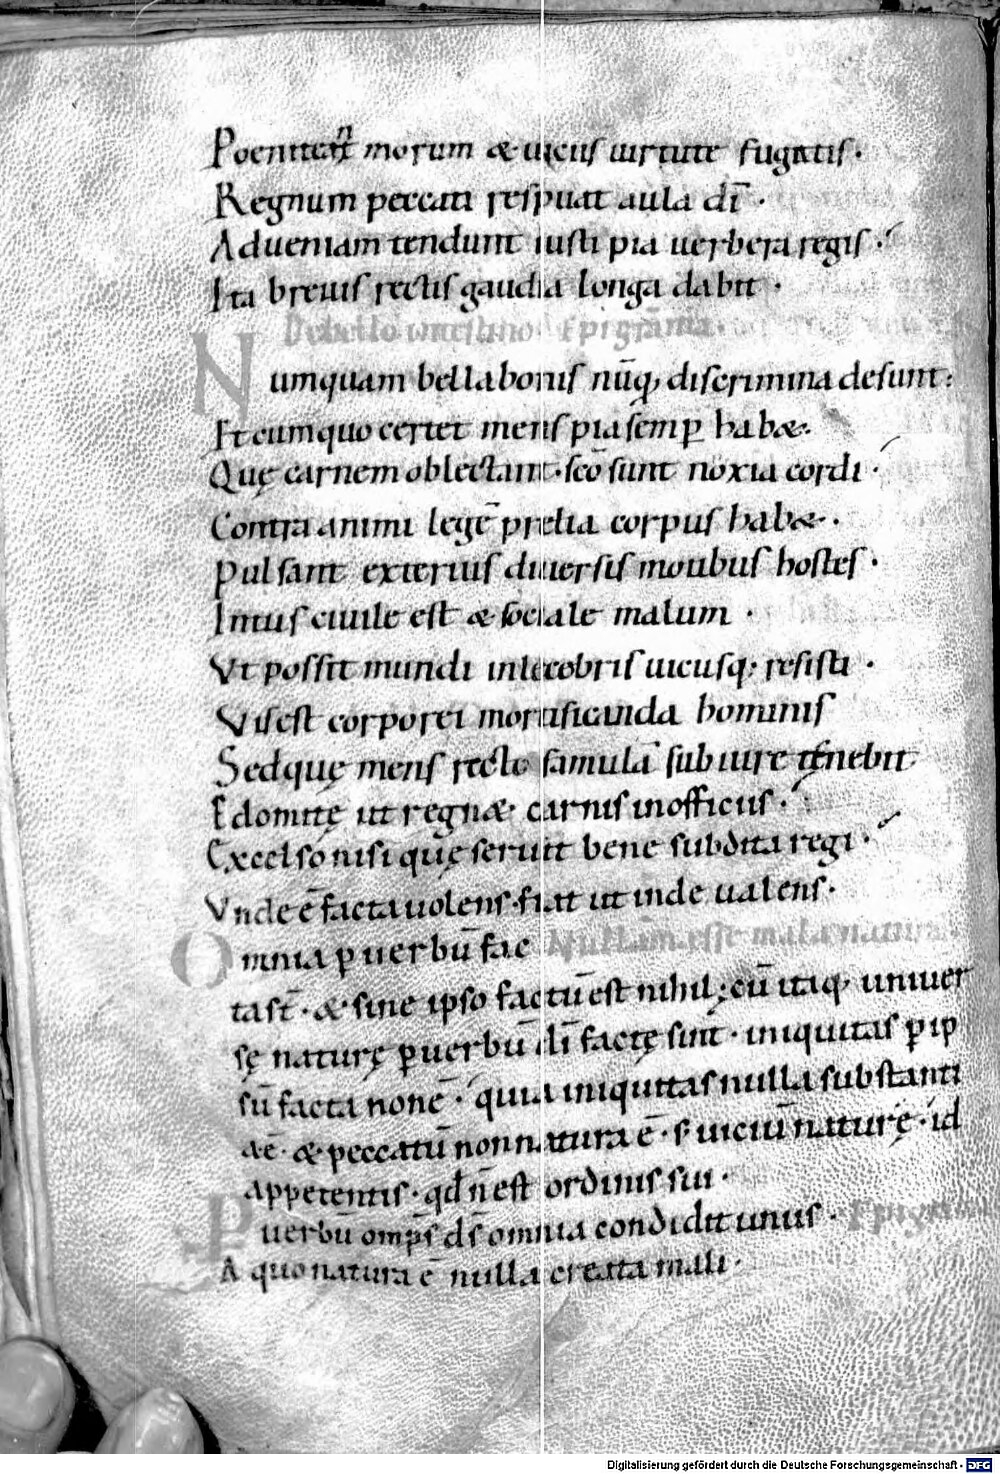 Poeniteat̅ morum & uicus uirtute fugatis·
Regnum peccati respuat aula di̅·
Ad ueniam tendunt iusti pia uerbera regis·
Ita breuis rectis gaudia longa dabit·
De bello intestino Epigra̅ma·
Numquam bella bonis nu̅q, discrimina desunt:
Et cumquo certet mens pia semp̲ habæ·
Quę carnem oblectant·sc̅o sunt noxia cordi·
Contra animi lege̅ prelia corpus habæ·
Pulsant exterius diuersis motibus hostes·
Intus ciuile est & sociale malum·
Vt possit mundi inlecebris uicusq; resisti·
Vis est corporei mortificanda hominis
Sed quę mens recto famula̅ sub iure tenebit
Edomitę ut regnæ carnis in officiis·
Excelso nisi quę seruit bene subdita regi·
Vnde e̅ facta uolens·fiat ut inde ualens·
Omnia p̲ uerbu̅ fac Nulla̅m esse mala̅ natura̅·
ta st̅·& sine ipso factu̅ est nihil; cu̅ itaq, uniuer
sę naturę p̲ uerbu̅ di̅ factę sint·iniquitas p̲ ip
su̅ facta non e̅·quia iniquitas nulla substanti
a e̅·& peccatu̅ non natura e̅·s; uiciu̅ naturę·id
appetentis·qd̅ n̅ est ordinis sui·
P uerbu̅ omp̅s d̅s omnia condidit unus· Epigra̅ma
A quo natura e̅ nulla creata mali·
Digitalisierung gefördert durch die Deutsche Forschungsgemeinschaft - DFG